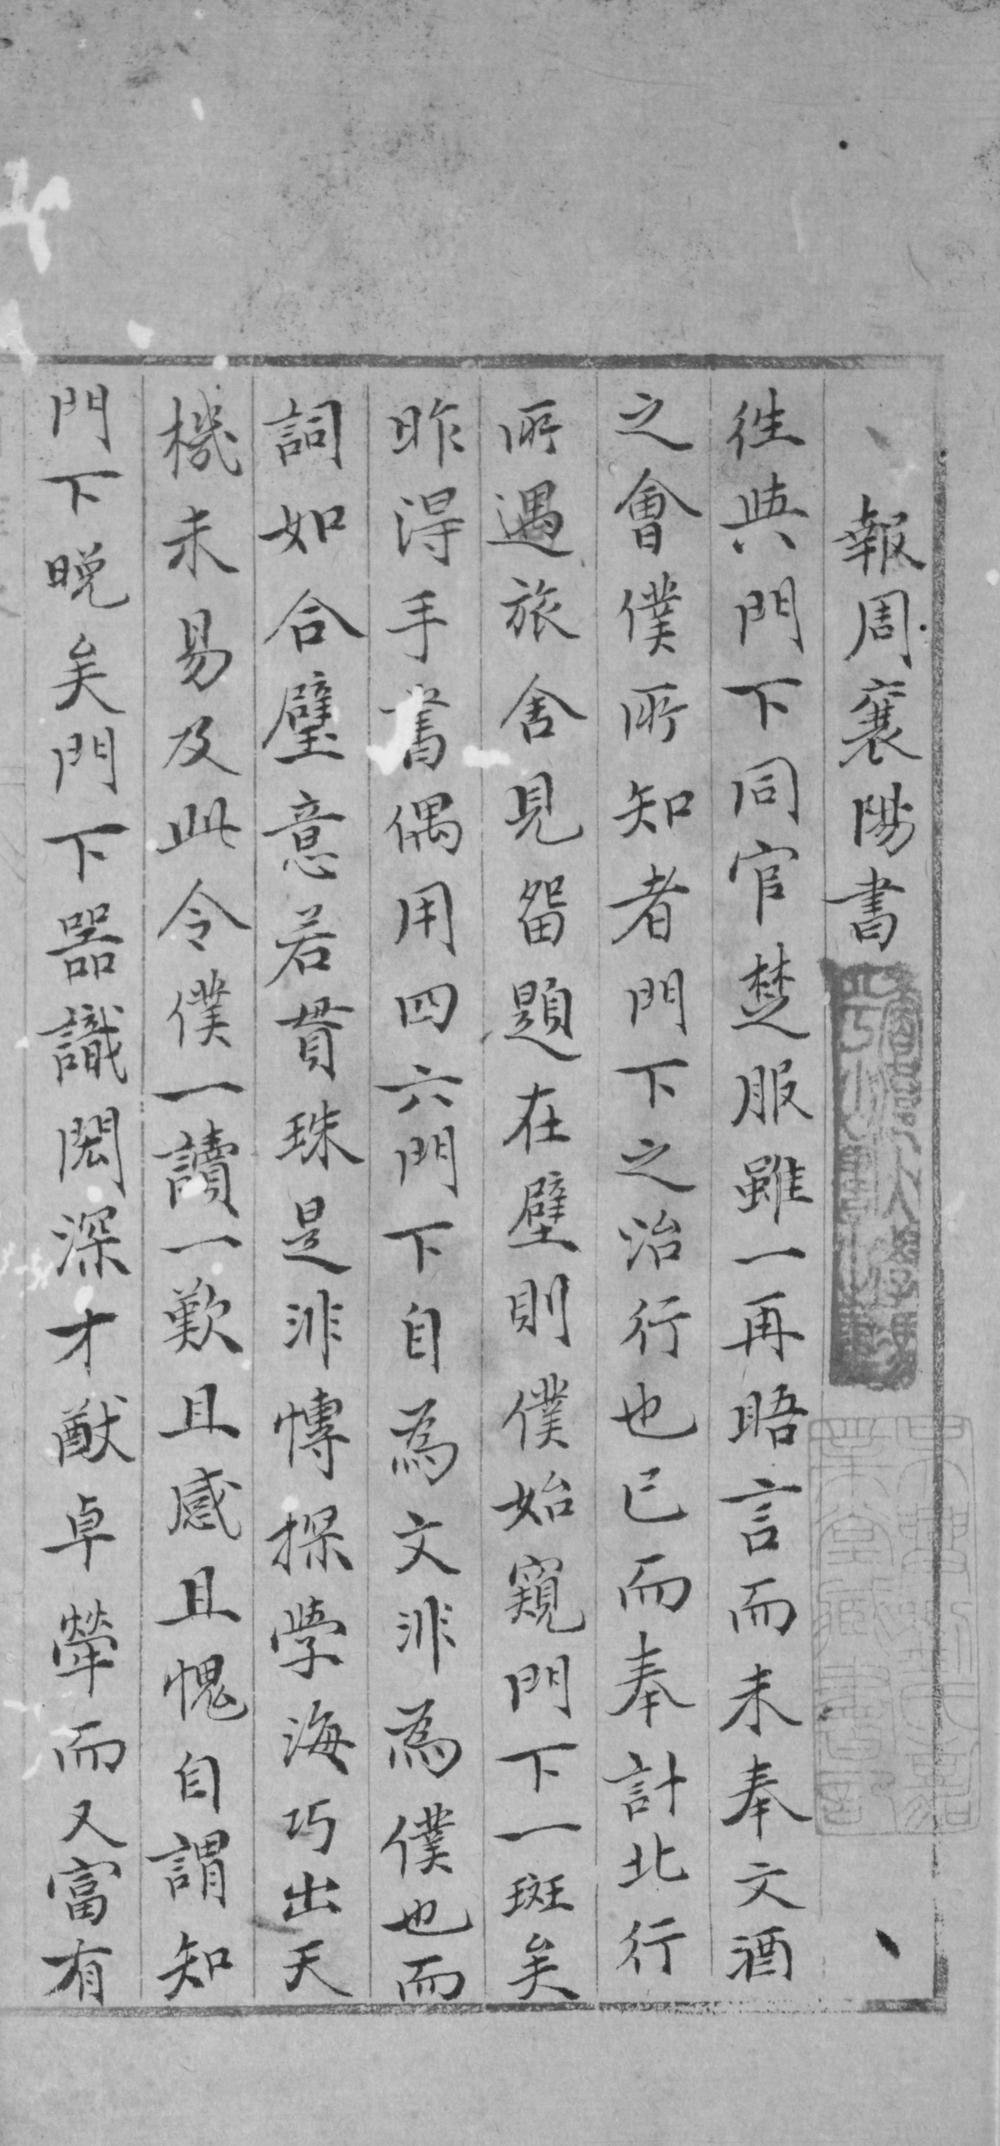 報周襄陽書
往與門下同官楚服雖一再晤言而未奉文酒
之會僕所知者門下之治行也已而奉計北行
所遇旅舍見留題在壁則僕始窺門下一斑矣
昨得手書偶用四六門下自為文非為僕也而
詞如合璧意若貫珠是非博探學海巧出天
機未易及此令僕一讀一歎且感且愧自謂知
門下晚矣門下器識閎深才猷卓犖而又富有